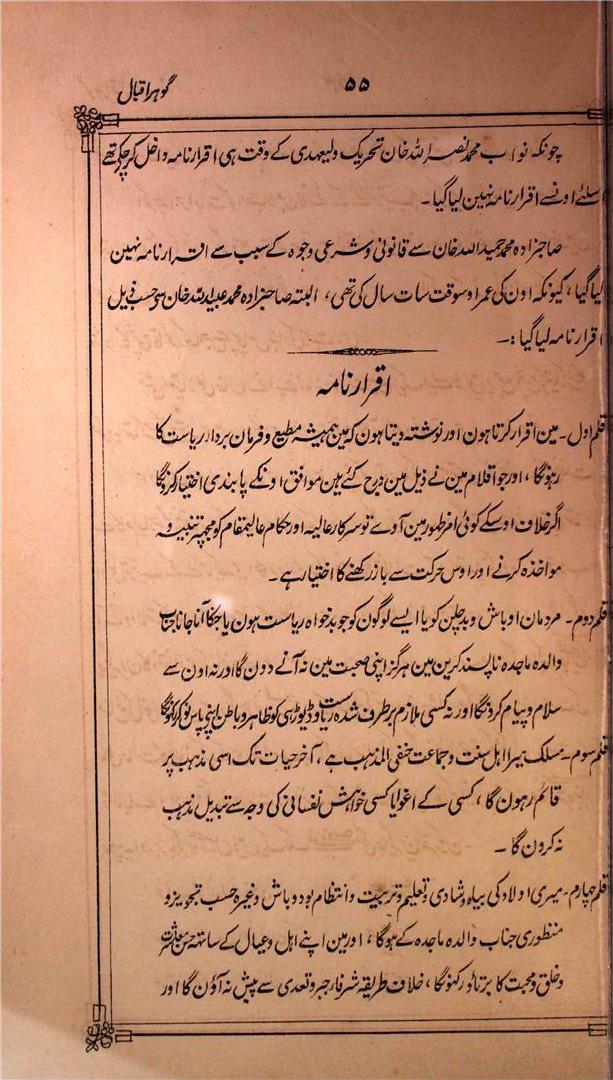 گوہر اقبال
۵۵
چونکہ نواب محمد نصر اللہ خان تحریک ولیعہدی کے وقت ہی اقرار نامہ داخل کر چکے تھے
اسلئے اونسے اقرار نامہ نہین لیا گیا۔
صاحبزادہ محمد حمید اللہ خان سے قانونی و شرعی وجوہ کے سبب سے اقرار نامہ نہین
لیا گیا، کیونکہ اون کی عمر اوسوقت سات سال کی تھی، البتہ صاحبزادہ محمد عبید اللہ خان سے حسب ذیل
اقرار نامہ لیا گیا:۔
اقرار نامہ
قلم اول۔ مین اقرار کرتا ہون اور نوشتہ دیتا ہون کہ مین ہمیشہ مطیع و فرمان بردار ریاست کا
رہونگا، اور جو اقلام مین نے ذیل مین درج کئے ہین موافق اونکے پابندی اختیار کرونگا
اگر خلاف اوسکے کوئی امر ظہور مین آوے تو سرکار عالیہ اور حکام عالیمقام کو مجھپر تنبیہ و
مواخذہ کرنے اور اوس حرکت سے باز رکھنے کا اختیار ہے۔
قلم دوم۔ مردمان اوباش و بدچلن کو یا ایسے لوگون کو جو بدخواہ ریاست ہون یا جنکا آنا جانا جناب
والدہ ماجدہ ناپسند کرین مین ہرگز اپنی صحبت مین نہ آنے دون گا اور نہ اون سے
سلام و پیام کرونگا اور نہ کسی ملازم برطرف شدہ ریاست و ڈیوڑہی کو ظاہر و باطن اپنے پاس نوکر رکھونگا
قلم سوم۔ مسلک میرا اہل سنت و جماعت حنفی المذہب ہے، آخر حیات تک اسی مذہب پر
قائم رہون گا، کسی کے اغوا یا کسی خواہش نفسانی کی وجہ سے تبدیل مذہب
نہ کرون گا۔
قلم چہارم۔ میری اولاد کی بیاہ و شادی و تعلیم و تربیت و انتظام بود و باش وغیرہ حسب تجویز و
منظوری جناب والدہ ماجدہ کے ہوگا، اور مین اپنے اہل و عیال کے ساتھ حسن معاشرت
و خلق و محبت کا برتاؤ رکھونگا، خلاف طریقہ شرفا جبر و تعدی سے پیش نہ آؤن گا اور